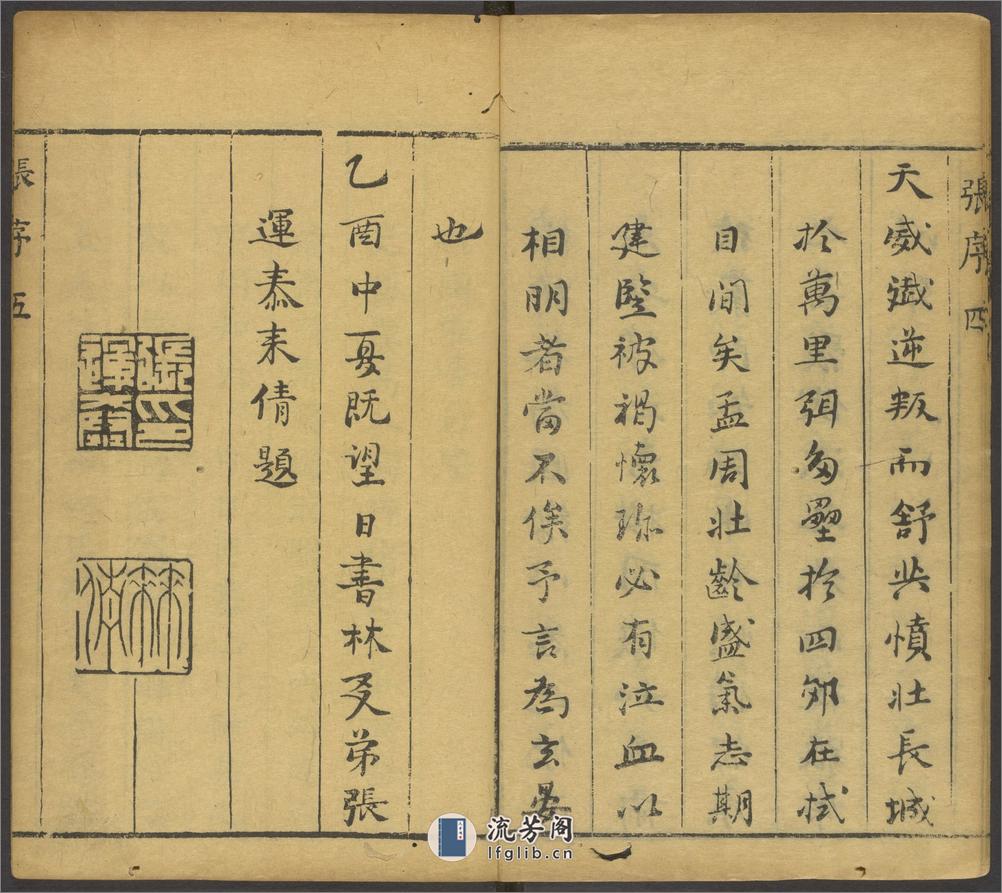 張序 四
天威殲逆叛而舒共憤壯長城
於萬里弭多壘於四郊在拭
目間矣孟周壯齡盛氣志期
建竪被褐懷珍必有泣血以
相明者當不俟予言為玄晏
也
乙酉中夏既望日書林友弟張
運泰來倩題
張印運泰
張序 五
流芳阁
lfglib.cn